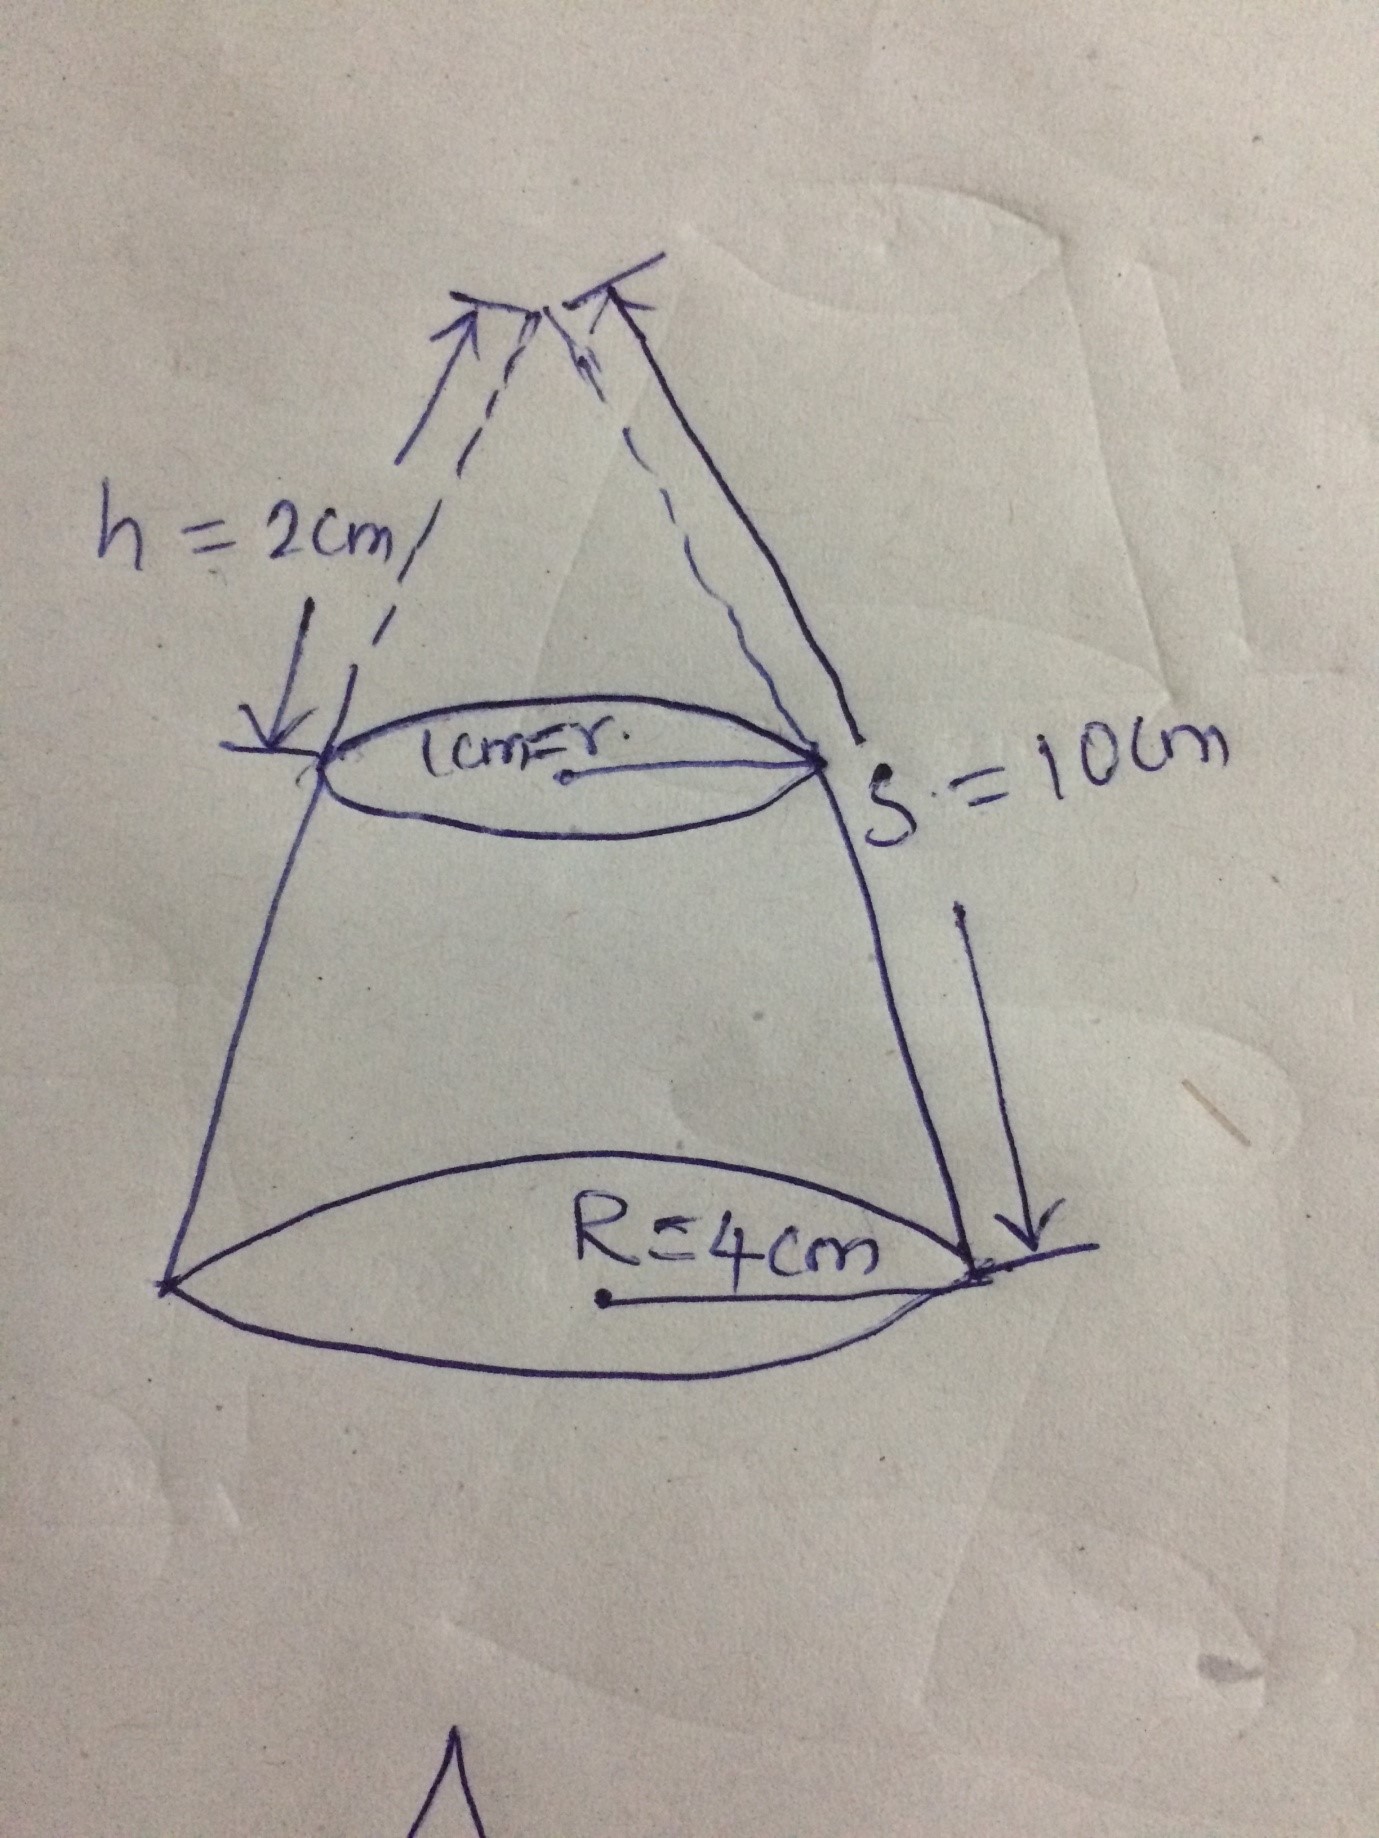 h = 2cm
1cm=r.
S = 10cm
R=4cm